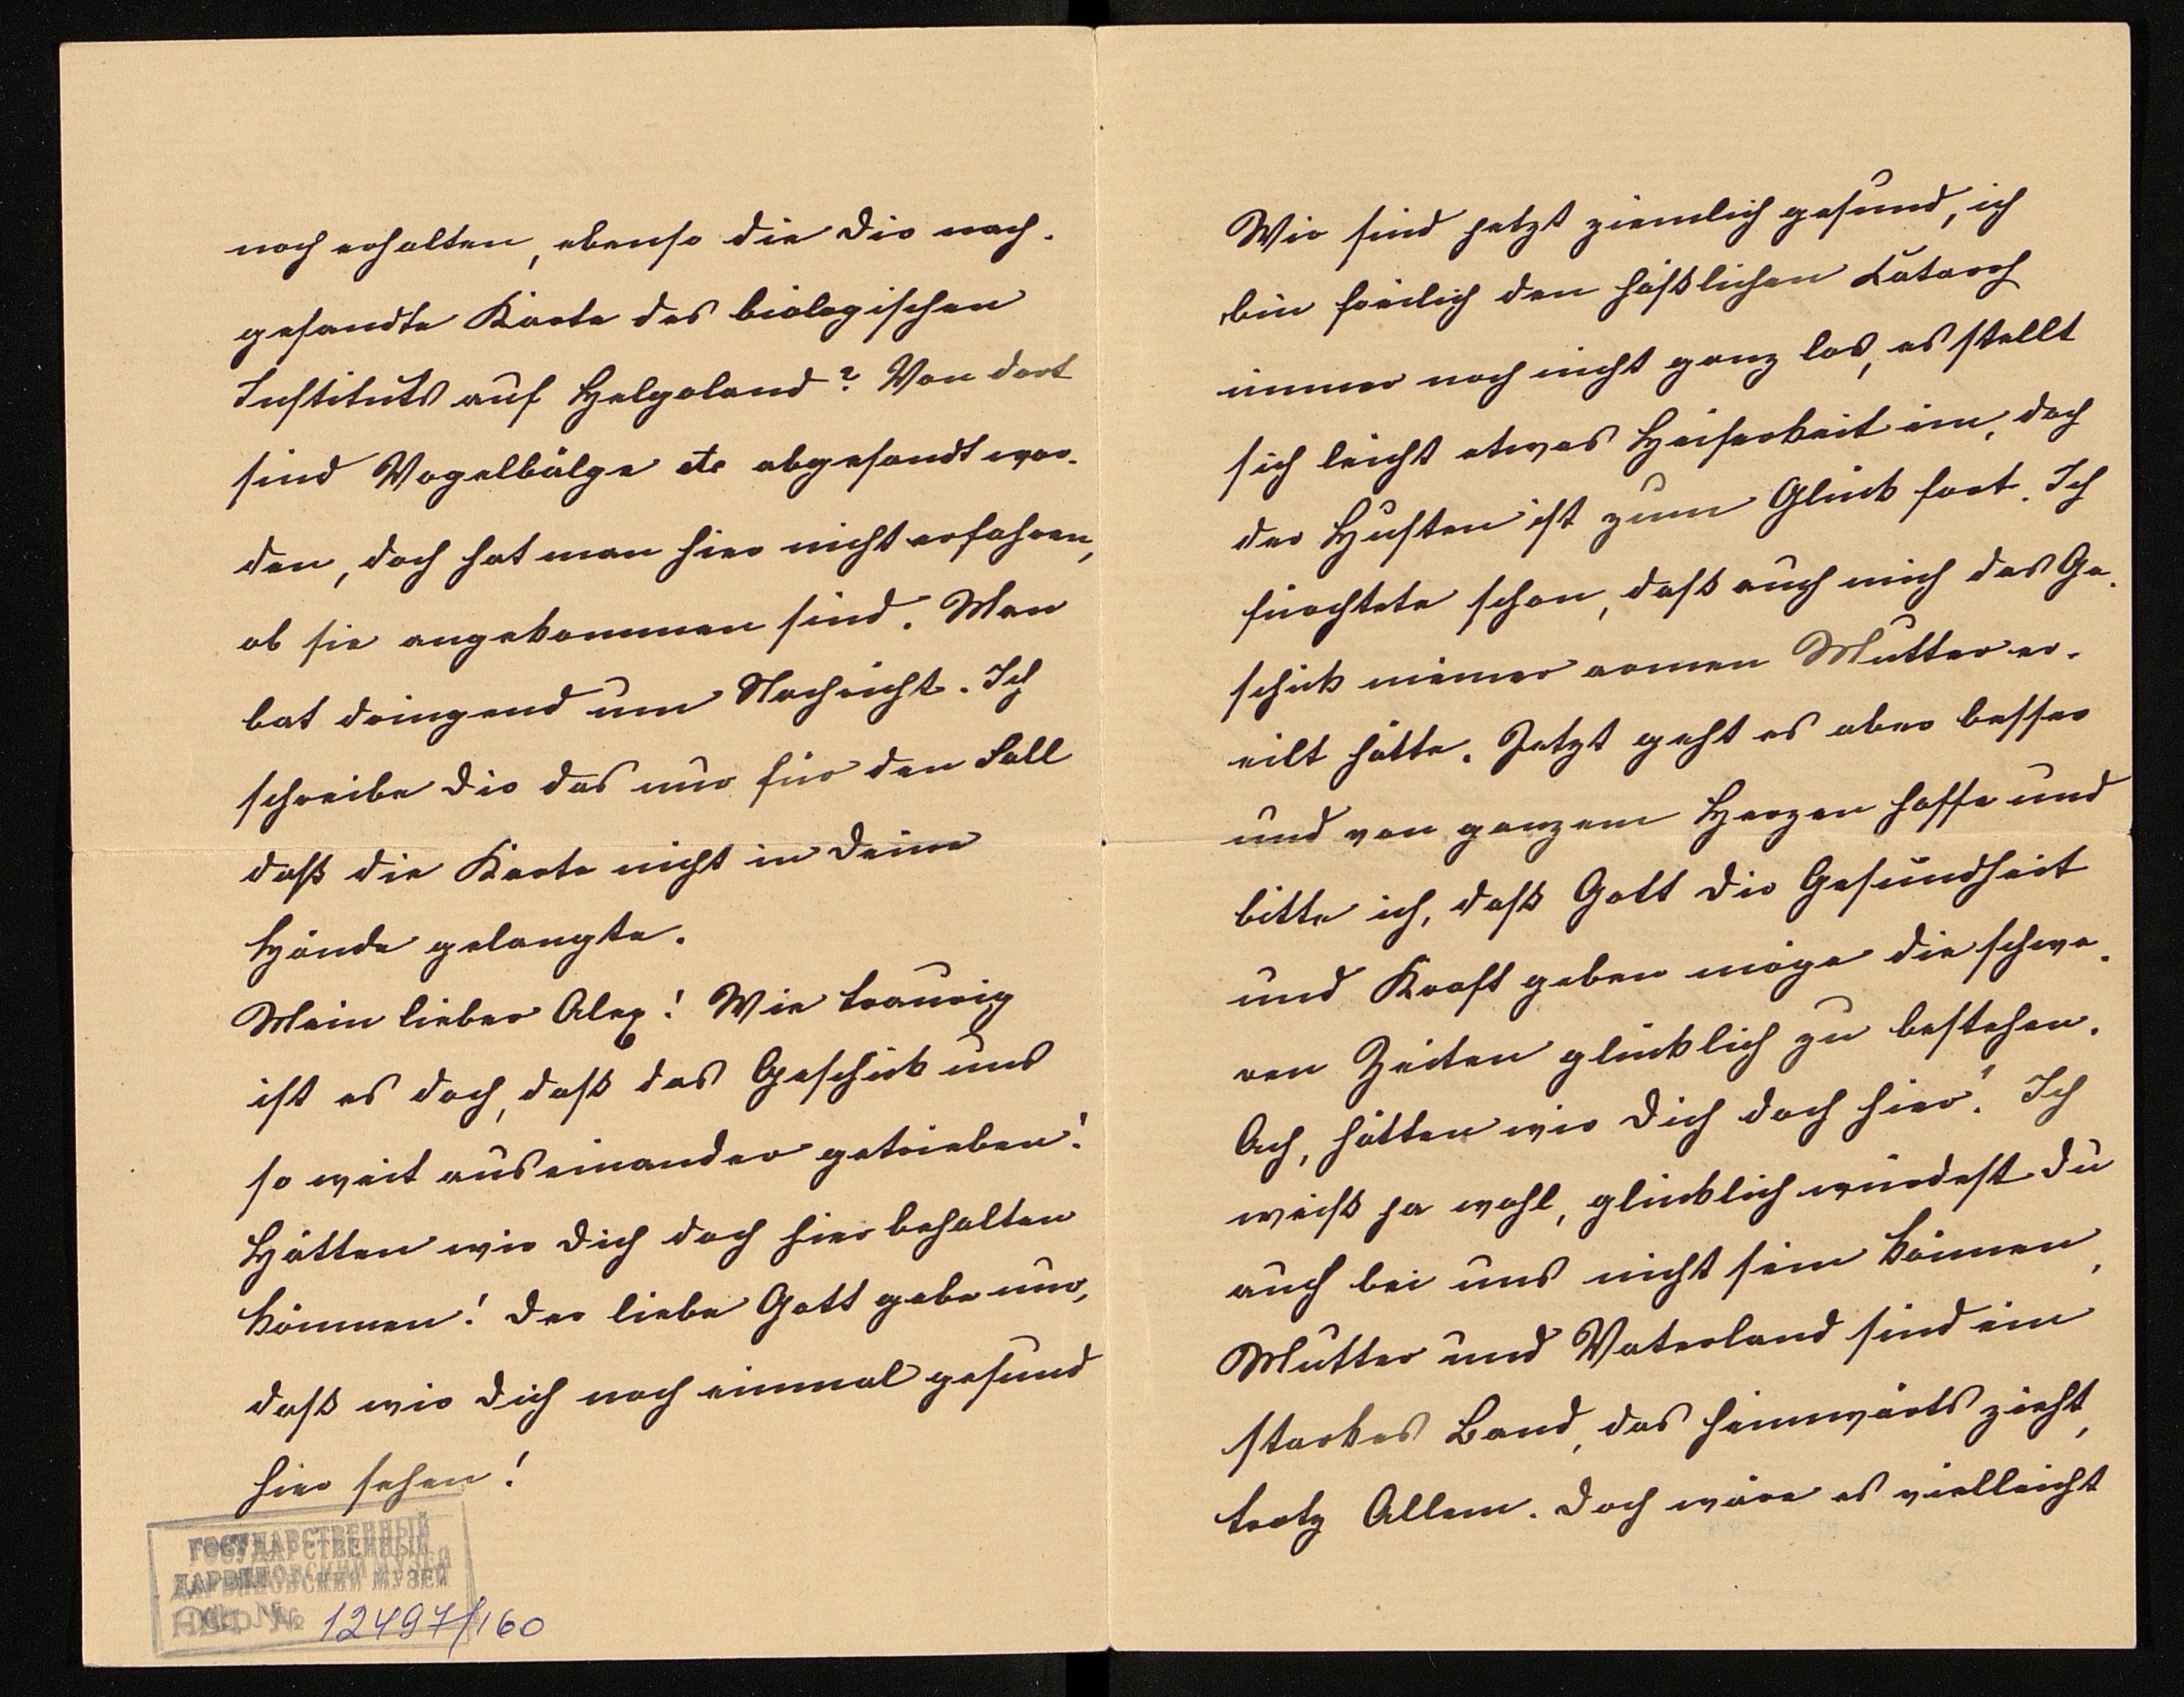 noch erhalten, ebenso die Dir nach-
gesandte Karte des biologischen
Instituts auf Helgoland? Von dort
sind Vogelbälge etc abgesandt wor-
den, doch hat man hier nicht erfahren,
ob sie angekommen sind. Man
bat dringend um Nachricht. Ich
schreibe Dir das nur für den Fall
daß die Karte nicht in Deine
Hände gelangte.
Mein lieber Alex! Wie traurig
ist es doch, daß das Geschick uns
so weit auseinander getrieben!
Hätten wir Dich doch hier behalten
können! Der liebe Gott gebe nur,
daß wir Dich noch einmal gesund
hier sehen!
ГОСУДАРСТВЕННЫЙ
ДАРВИНОВСКИЙ МУЗЕЙ
№ 12497/160
Wir sind jetzt ziemlich gesund, ich
bin freilich den häßlichen Katarrh
immer noch nicht ganz los, es stellt
sich leicht etwas Heiserkeit ein, doch
der Husten ist zum Glück fort. Ich
fürchtete schon, daß auch mich das Ge-
schick meiner armen Mutter er-
eilt hätte. Jetzt geht es aber besser
und von ganzem Herzen hoffe und
bitte ich, daß Gott Dir Gesundheit
und Kraft geben möge die schwe-
ren Zeiten glücklich zu bestehen.
Ach, hätten wir Dich doch hier! Ich
weiß ja wohl, glücklich würdest Du
auch bei uns nicht sein können,
Mutter und Vaterland sind ein
starkes Band, das heimwärts zieht,
trotz Allem. Doch wäre es vielleicht